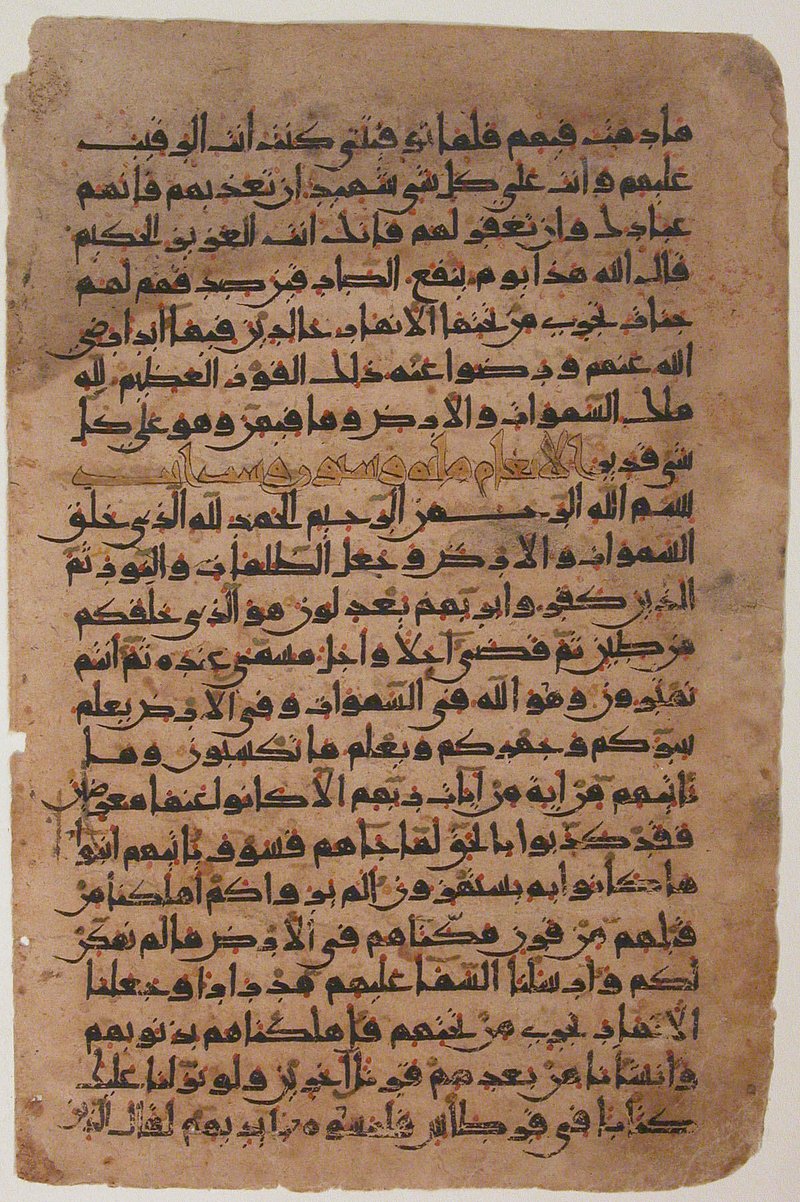 ما دمت فيهم فلما توفيتني كنت انت الرقيب
عليهم وانت على كل شي شهيد ان تعذبهم فانهم
عبادك وان تغفر لهم فانك انت العزيز الحكيم
قال الله هذا يوم ينفع الصادقين صدقهم لهم
جنات تجري من تحتها الانهار خالدين فيها ابدا رضي
الله عنهم ورضوا عنه ذلك الفوز العظيم لله
ملك السموات والارض وما فيهن وهو على كل
شي قدير الانعام مايه وستون وست ايات
بسم الله الرحمن الرحيم الحمد لله الذي خلق
السموات والارض وجعل الظلمات والنور ثم
الذين كفروا بربهم يعدلون هو الذي خلقكم
من طين ثم قضى اجلا واجل مسمى عنده ثم انتم
تمترون وهو الله في السموات وفي الارض يعلم
سركم وجهركم ويعلم ما تكسبون وما
تاتيهم من اية من ايات ربهم الا كانوا عنها معرضين
فقد كذبوا بالحق لما جاهم فسوف ياتيهم انبوا
ما كانوا به يستهزون الم يروا كم اهلكنا من
قبلهم من قرن مكناهم في الارض ما لم نمكن
لكم وارسلنا السما عليهم مدرارا وجعلنا
الانهار تجري من تحتهم فاهلكناهم بذنوبهم
وانشانا من بعدهم قرنا اخرين ولو نزلنا عليك
كتابا في قرطاس فلمسوه بايديهم لقال الذين